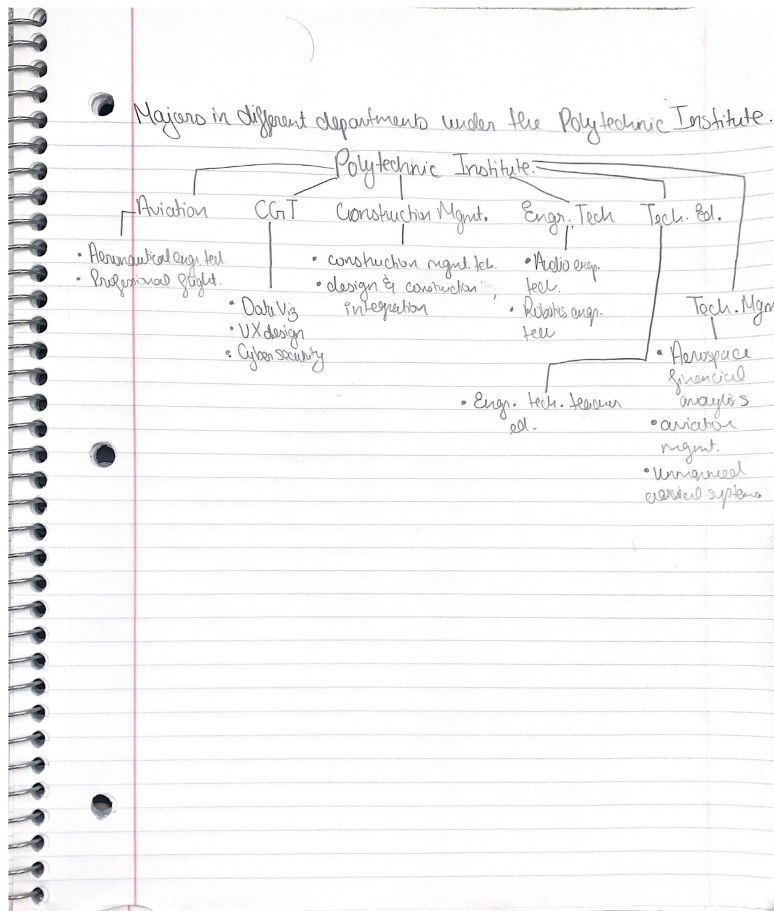 Majors in different departments under the Polytechnic Institute.
Polytechnic Institute.
Aviation
CGT
Construction Mgmt.
Engr. Tech
Tech. Ed.
• Aeronautical engr. tech.
• Professional flight.
• Data Viz
• UX design
• Cyber security
• construction mgmt. tch.
• design & construction
integration
• Audio engr.
tech.
• Robotics engr.
tech
• Engr. tech. teacher
ed.
Tech. Mgm
• Aerospace
financial
analytics
• aviation
mgmt.
• Unmanned
aerial systems